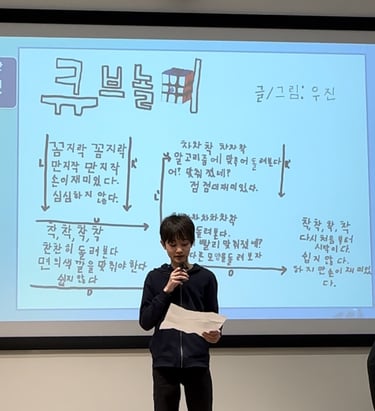 큐브놀이
글/그림: 우진
꼼지락 꼼지락
만지작 만지작
손이 재미있다.
심심하지 않다.
L
R'
U
착, 착, 착, 착
천천히 돌려본다
면의 색깔을 맞춰야 한다
쉽지 않다
D
차차착 차차착
알고리즘에 맞추어 돌려본다
어? 맞춰졌네?
점점 더 재미있다.
L'
R'
돌려본다.
빨리 맞춰졌네?
다른 모양을 돌려보자
D
착, 착, 착, 착
다시 처음부터
시작이다.
쉽지 않다.
하지만 손이 재미있
다.